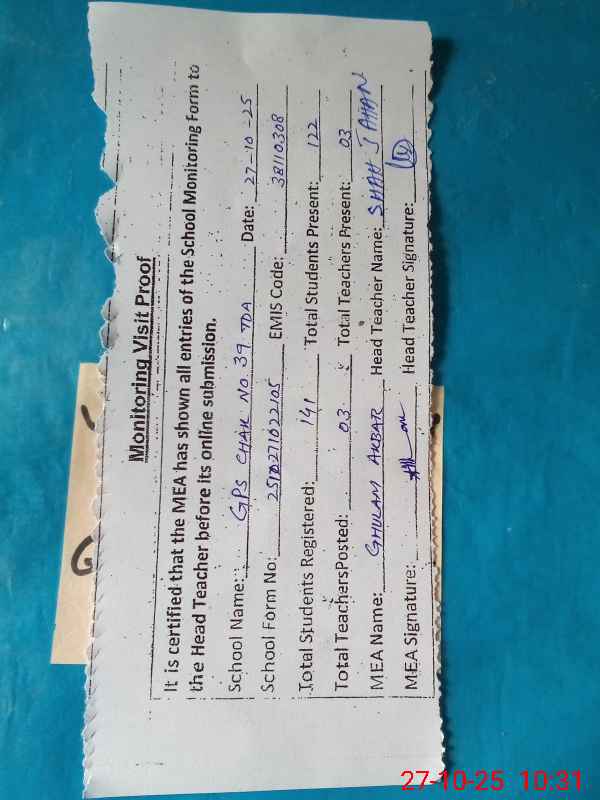 Monitoring Visit Proof
It is certified that the MEA has shown all entries of the School Monitoring Form to
the Head Teacher before its online submission.
School Name: GPS CHAK NO. 39 TDA Date: 27-10-25
School Form No: 2510271022105 EMIS Code: 38110308
Total Students Registered: 141 Total Students Present: 122
Total TeachersPosted: 03 Total Teachers Present: 03
MEA Name: GHULAM AKBAR Head Teacher Name: SHAH JAHAN
MEA Signature: Head Teacher Signature:
G
27-10-25 10:31